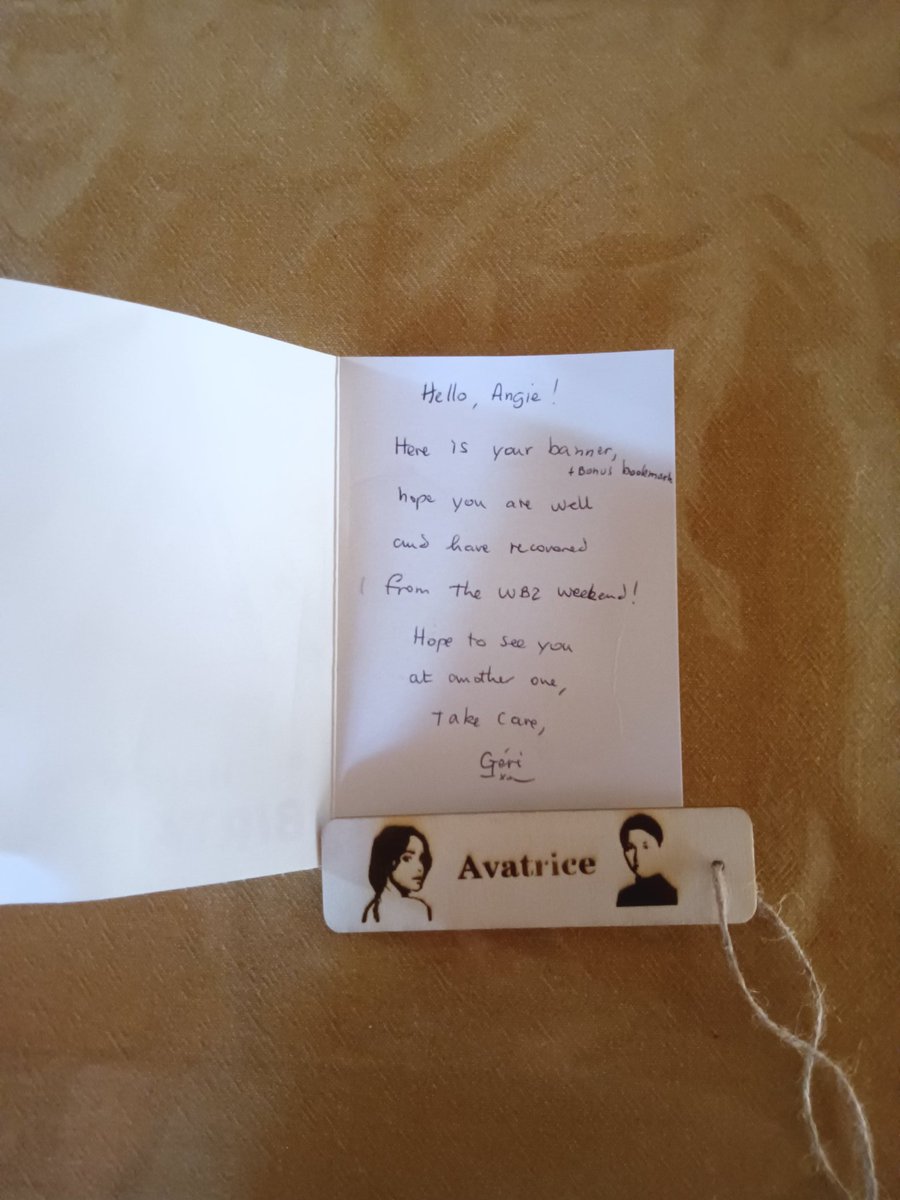 Hello, Angie!
Here is your banner,
+ Bonus bookmark
hope you are well
and have recovered
from the WB2 weekend!
Hope to see you
at another one,
Take care,
Géri
xx
Avatrice